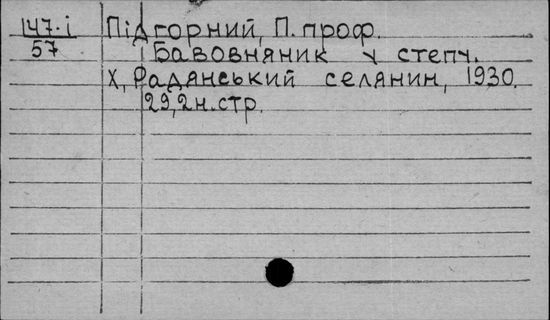 147.i
57
Підгорний, П. проф.
Бавовняник у степу.
Х, Радянський селянин, 1930.
29,2н.стр.